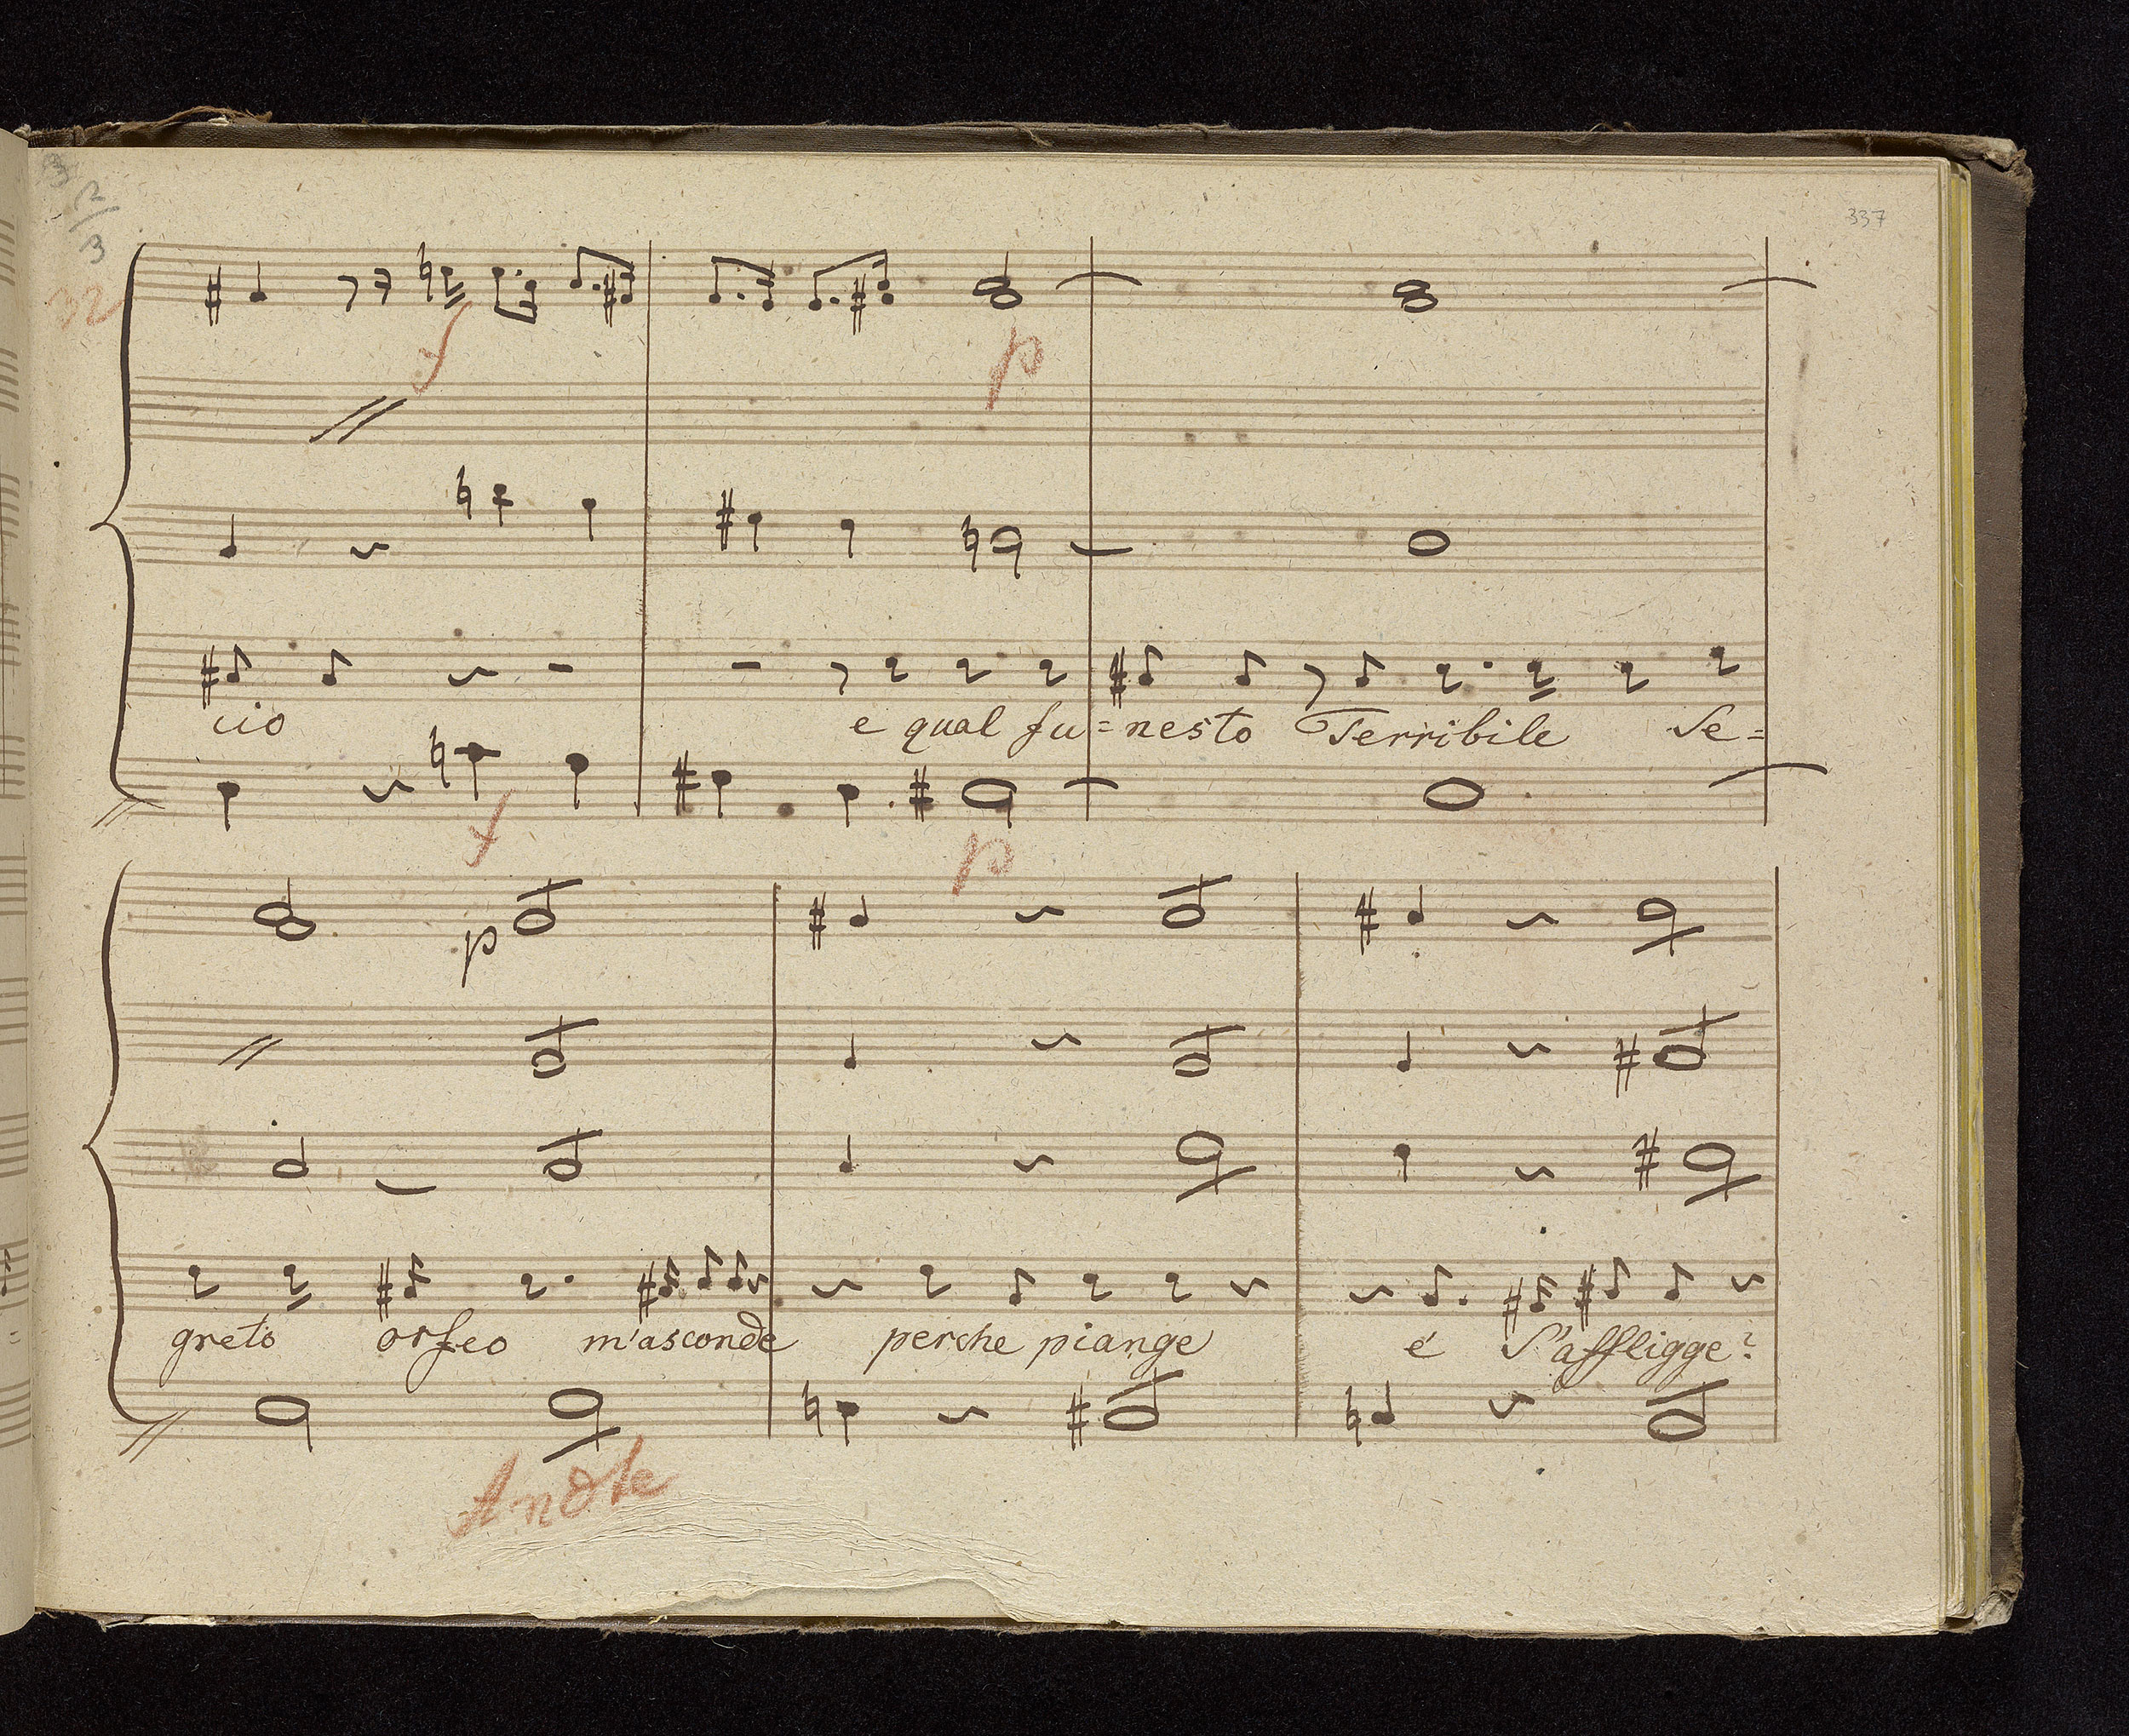 337
2/3
3
32
f
p
cio e qual fu=nesto Terribile Se=
f
p
p
greto orfeo m'asconde perche piange é S'affligge?
Andte